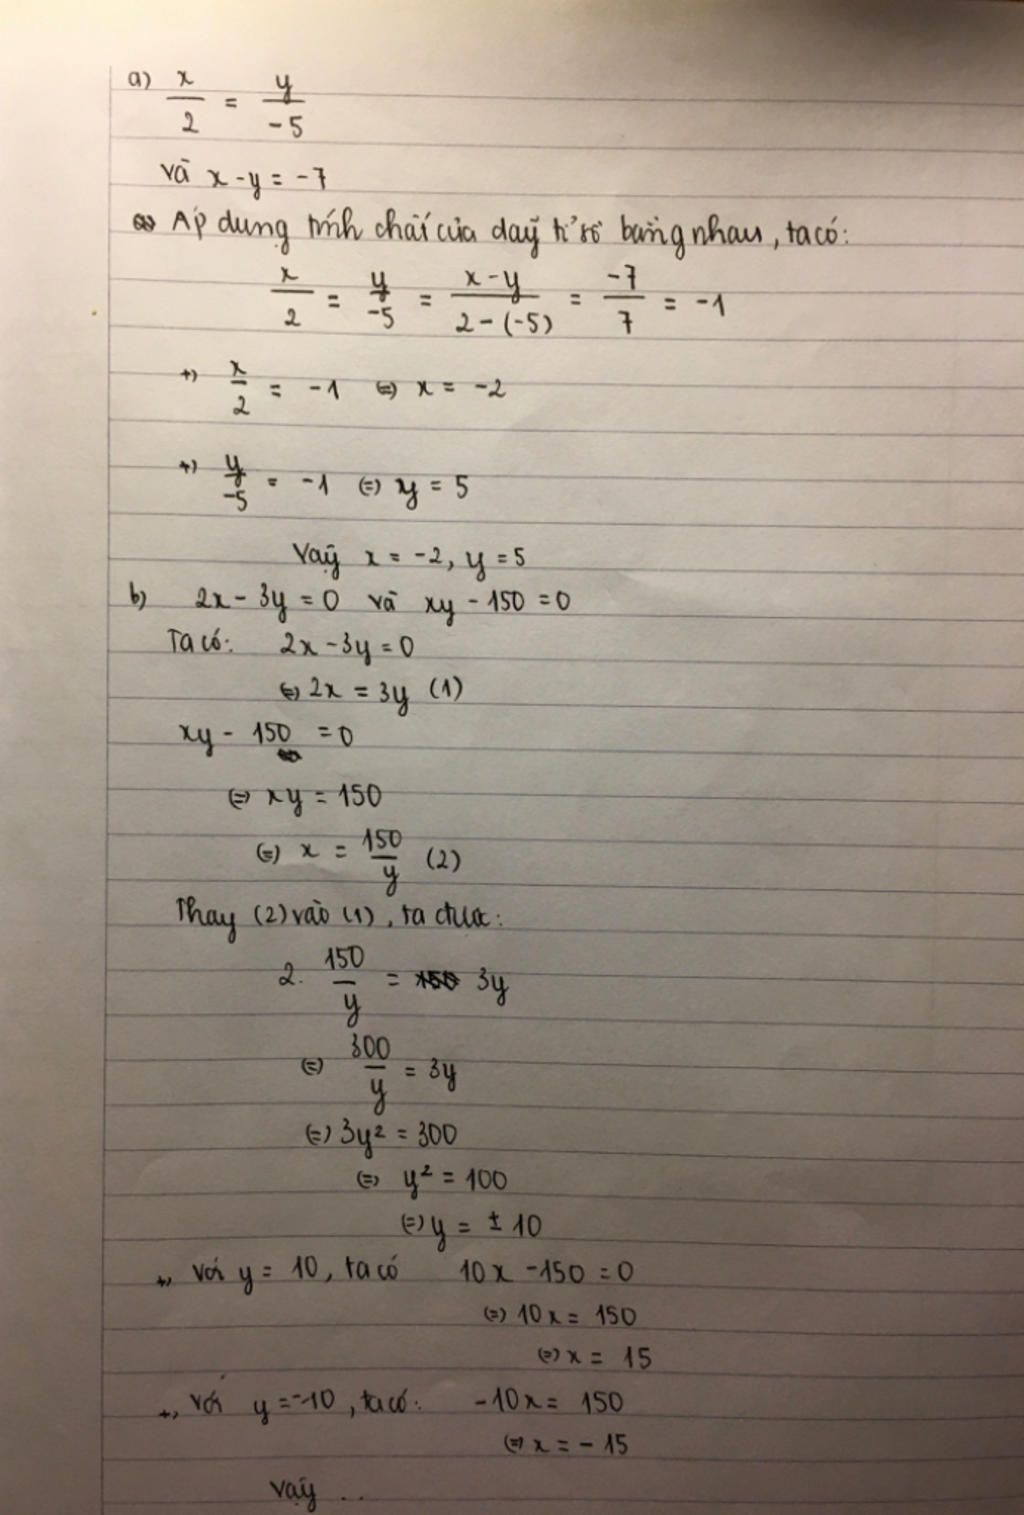 a) x/2 = y/-5
và x - y = -7
Áp dụng tính chất của dãy tỉ số bằng nhau, ta có:
x/2 = y/-5 = x-y/2-(-5) = -7/7 = -1
+) x/2 = -1 (=) x = -2
+) y/-5 = -1 (=) y = 5
Vậy x = -2, y = 5
b) 2x - 3y = 0 và xy - 150 = 0
Ta có: 2x - 3y = 0
(=) 2x = 3y (1)
xy - 150 = 0
(=) xy = 150
(=) x = 150/y (2)
Thay (2) vào (1), ta được:
2. 150/y = 3y
(=) 300/y = 3y
(=) 3y² = 300
(=) y² = 100
(=) y = ± 10
+, với y = 10, ta có 10x - 150 = 0
(=) 10x = 150
(=) x = 15
+, với y = -10, ta có: -10x = 150
(=) x = - 15
Vậy ..